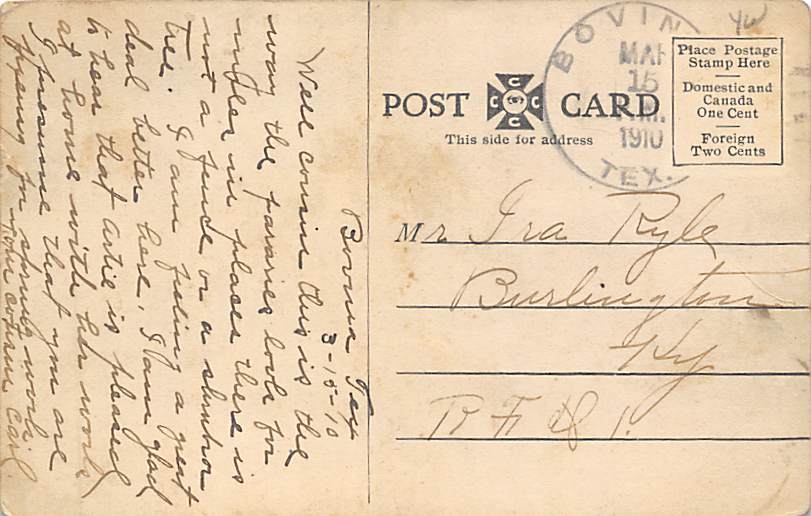 Bovina Tex
3-15-10
Well cousin this is the
way the pararies look for
miles in places there is
not a fence or a shrub or
tree. I am feeling a great
deal better here, I am glad
to hear that Artie is pleased
at home with her work
I presume that you are
fixing for spring work
your cousin Earl.
POST CARD
This side for address
BOVINA
MAR
15
1910
TEX.
Place Postage
Stamp Here
Domestic and
Canada
One Cent
Foreign
Two Cents
C C C C
Mr. Ira Ryle
Burlington
Ky
R F D 1.